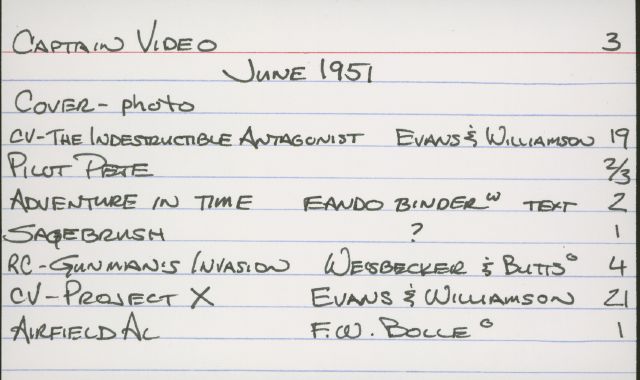 CAPTAIN VIDEO 3
JUNE 1951
COVER - photo
CV-THE INDESTRUCTIBLE ANTAGONIST EVANS & WILLIAMSON 19
PILOT PETE 2/3
ADVENTURE IN TIME EANDO BINDER W TEXT 2
SAGEBRUSH ? 1
RC-GUNMAN'S INVASION WEISBECKER & BUTTS G 4
CV-PROJECT X EVANS & WILLIAMSON 21
AIRFIELD AL F.W. BOLLE G 1